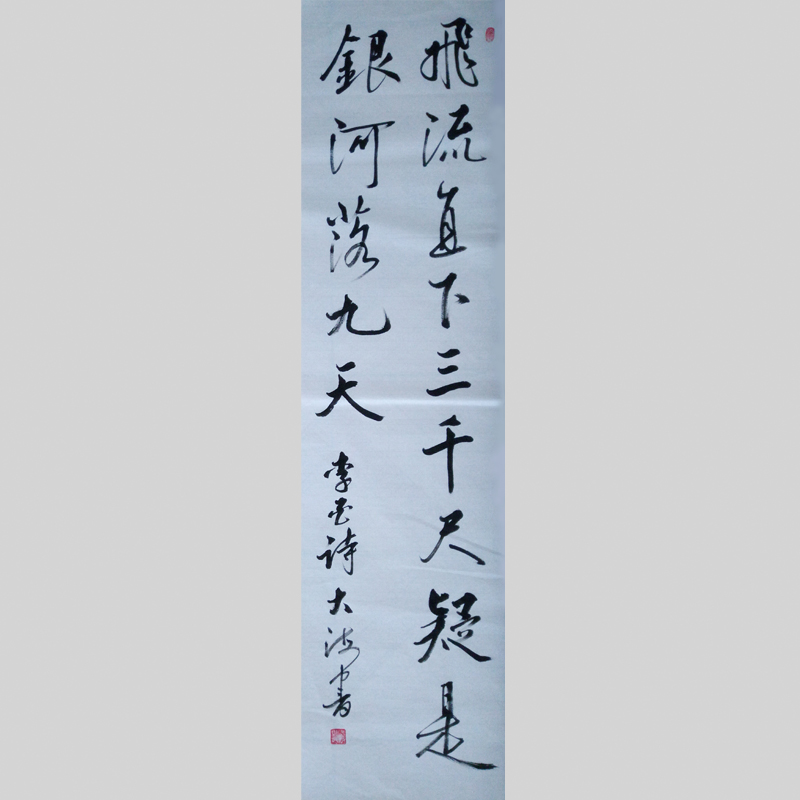 飛流直下三千尺疑是
銀河落九天
李白詩大海書